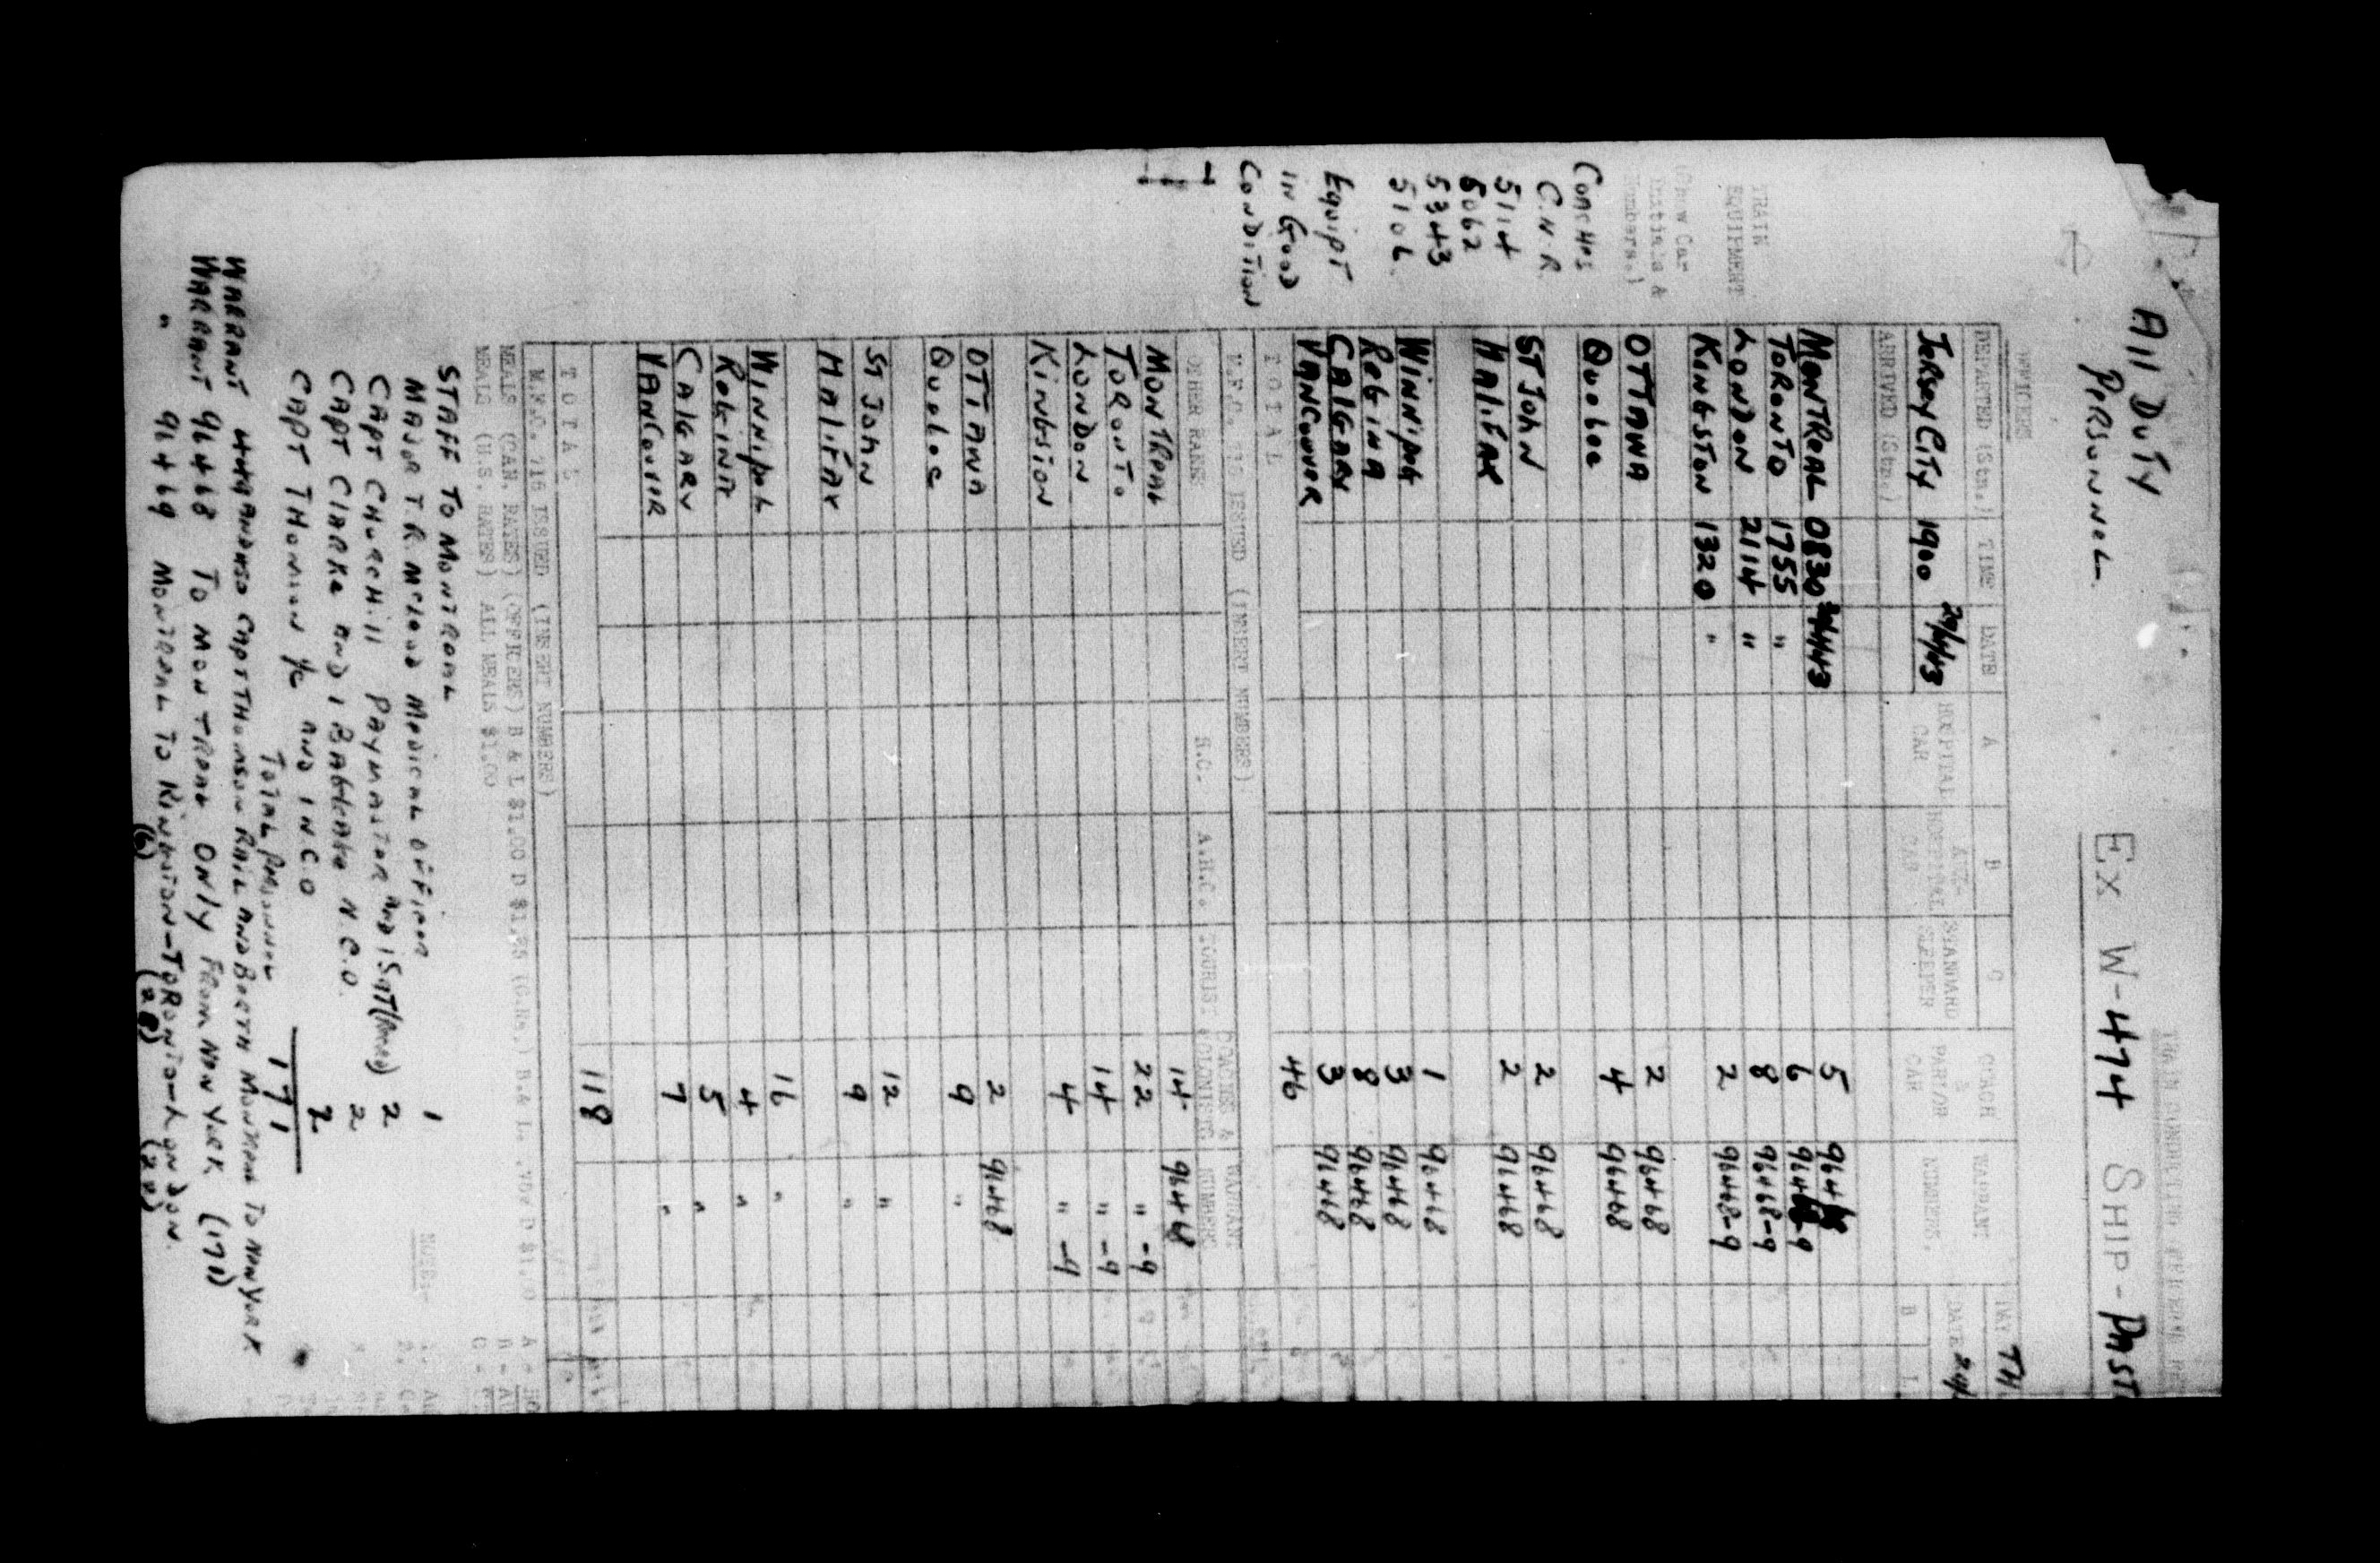 All DUTY
PERSONNEL.
EX W-474 SHIP-PAST
TRAIN CONDUCTING OFFICERS
TRAIN
EQUIPMENT
(Show Car
Initials &
Numbers.)
Coaches
C.N.R.
5114
5343
Equipt
in Good
Condition
OFFICERS
DEPARTED (Stn.) TIME DATE A B C COACH WARRANT
HOSPITAL CAR
HOSPITAL CAR
STANDARD SLEEPER
& PARLOR CAR
NUMBERS.
Jersey City 1900
ARRIVED (Stn.)
MONTREAL 0830 5
TORONTO 1755 " 6
LONDON 2114 " 8 96468-9
KINGSTON 1320 " 2 96468-9
OTTAWA 2 96468
Quebec 4 96468
ST JOHN 2 96468
HALIFAX 2 96468
WINNIPEG 1 96468
REGINA 3 96468
CALGARY 8 96468
VANCOUVER 3 96468
TOTAL 46
ISSUED (INSERT NUMBERS)
OTHER RANKS H.C. A.H.C. TOURIST COACHES & COLONIST WARRANT NUMBERS
MONTREAL 14 96468
TORONTO 22 " -9
LONDON 14 " -9
KINGSTON 4 " -9
OTTAWA 2 96468
Quebec 9 "
ST JOHN 12 "
HALIFAX 9 "
WINNIPEG 16 "
REGINA 4 "
CALGARY 5 "
VANCOUVER 7 "
TOTAL 118
ISSUED (INSERT NUMBERS)
MEALS (CAN. RATES) (OFFICERS) B & L $1.00
MEALS (U.S. RATES) ALL MEALS $1.00
NOTE:
STAFF TO MONTREAL
MAJOR T.R. McLEOD MEDICAL OFFICER 1
CAPT CHURCHILL PAYMASTER AND 1 SGT 2
CAPT CLARKE AND 1 BAGGAGE N.C.O. 2
CAPT THOMSON AND 1 NCO 2
TOTAL PERSONNEL 171
WARRANT CAPT THOMSON RAIL AND BERTH MONTREAL TO NEW YORK
WARRANT 96468 TO MONTREAL ONLY FROM NEW YORK (171)
" 96469 MONTREAL TO KINGSTON-TORONTO-LONDON.
(6) (28) (22)